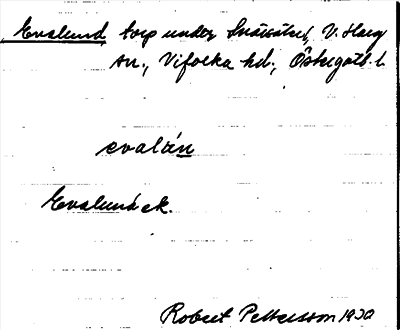 Evalund, torp under Snåsätter, V. Harg
sn., Vifolka hd., Östergötl. l.
evalún
Evalund ek.
Robert Pettersson 1930